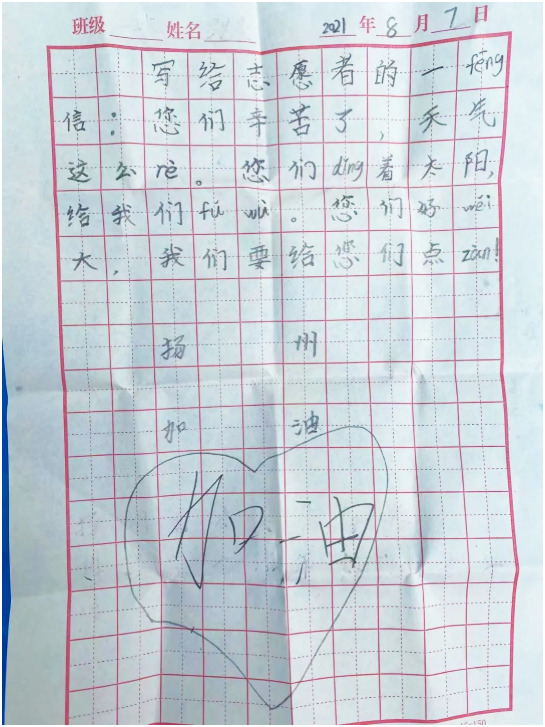 班级 姓名 2021 年 8 月 7 日
写给志愿者的一fēng
信：您们辛苦了，天气
这么rè。您们dǐng着太阳，
给我们fú wù。您们好wěi
大，我们要给您们点zàn！
扬州
加油
加油